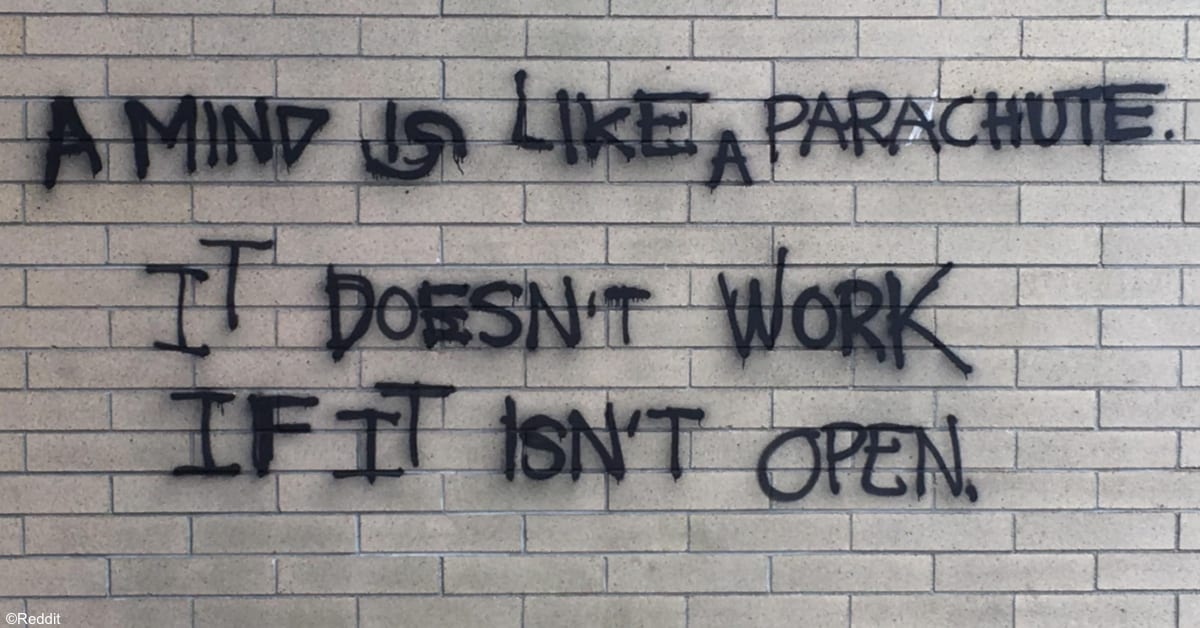 A MIND IS LIKE A PARACHUTE.
IT DOESN'T WORK
IF IT ISN'T OPEN.
©Reddit